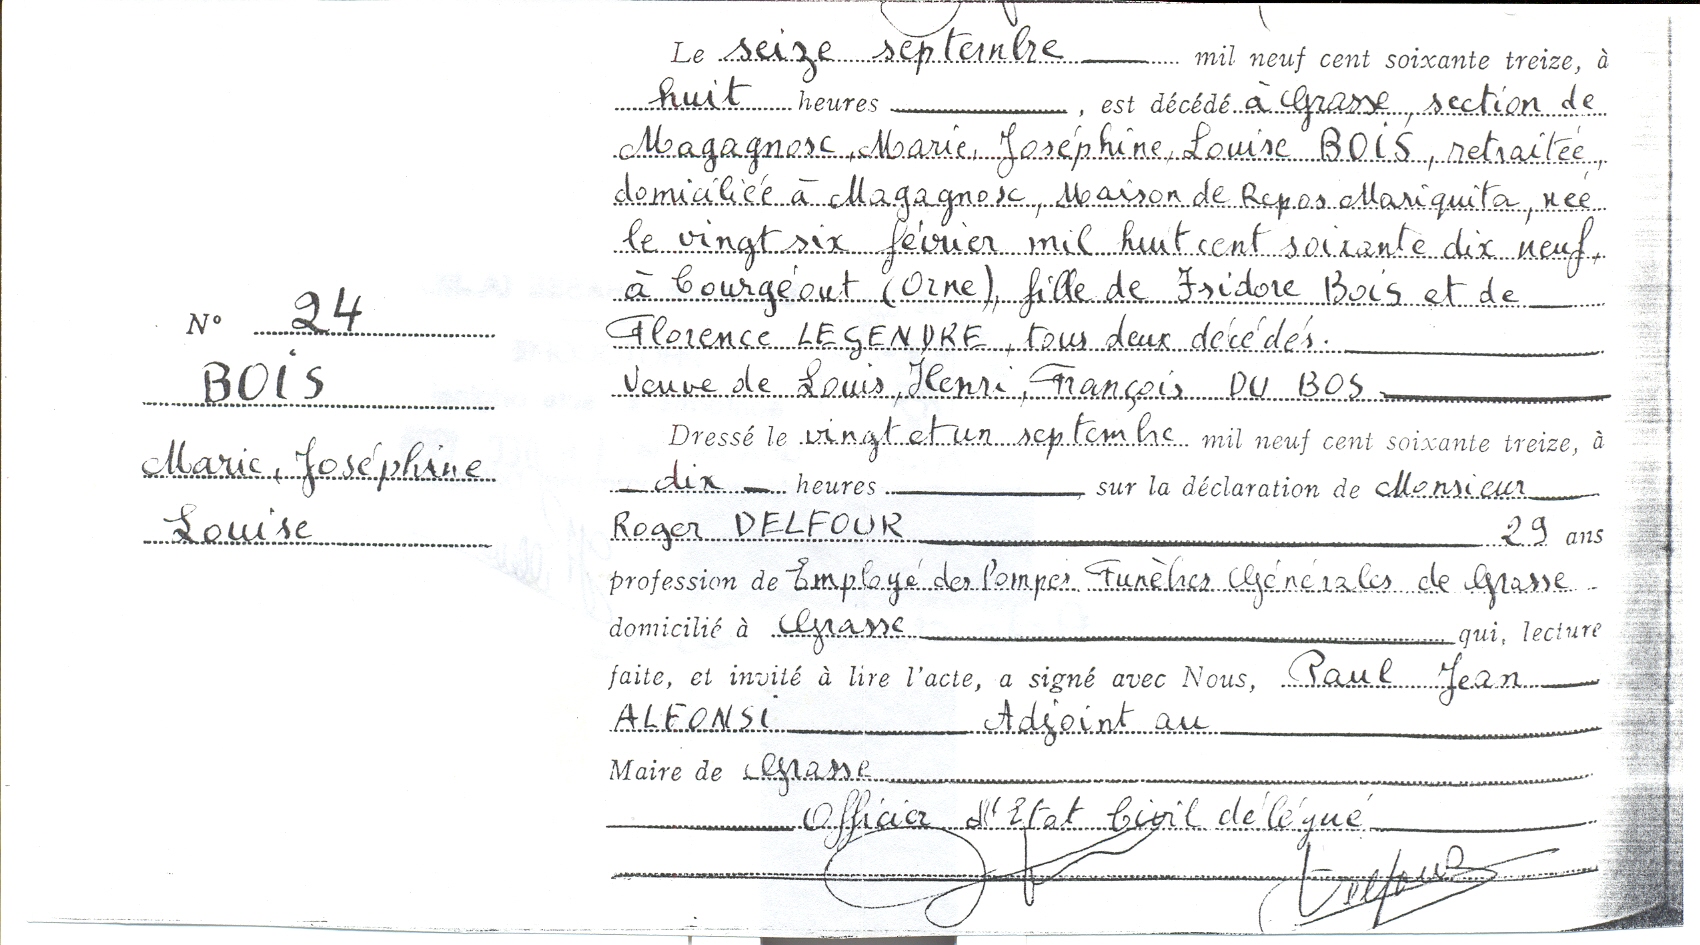 Le seize septembre mil neuf cent soixante treize, à
huit heures , est décédé à Grasse, section de
Magagnosc, Marie, Joséphine, Louise BOIS, retraitée,
domiciliée à Magagnosc, Maison de Repos Mariquita, née
le vingt six février mil huit cent soixante dix neuf,
à Courgéout (Orne), fille de Isidore Bois et de
Florence LEGENDRE, tous deux décédés.
Veuve de Louis, Henri, François DU BOS
Dressé le vingt et un septembre mil neuf cent soixante treize, à
dix heures , sur la déclaration de Monsieur
Roger DELFOUR 29 ans
profession de Employé des Pompes Funèbres Générales de Grasse
domicilié à Grasse qui, lecture
faite, et invité à lire l'acte, a signé avec Nous, Paul Jean
ALFONSI Adjoint au
Maire de Grasse
Officier d'Etat Civil délégué
Delfour
N° 24
BOIS
Marie, Joséphine
Louise